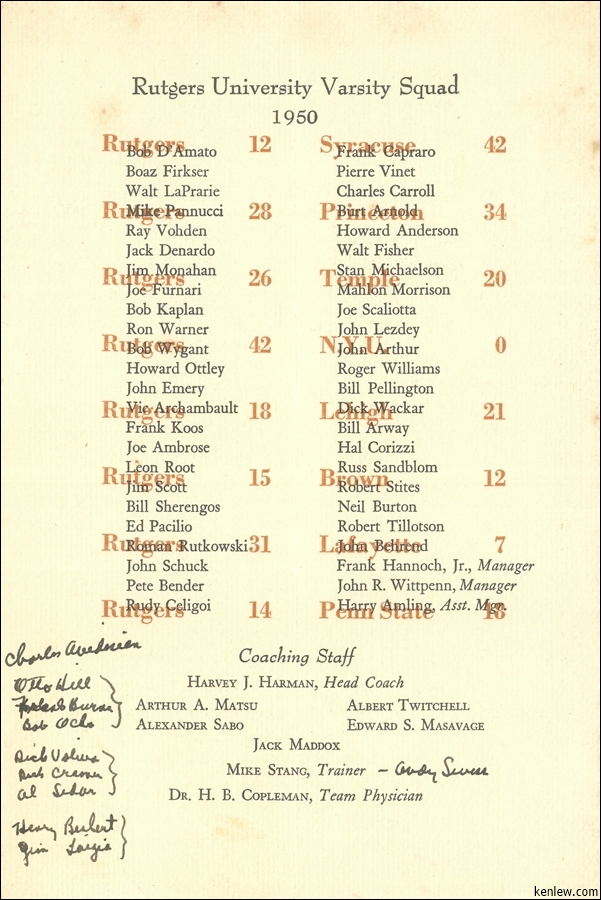 Rutgers University Varsity Squad
1950
Rutgers 12 Syracuse 42
Bob D'Amato Frank Capraro
Boaz Firkser Pierre Vinet
Walt LaPrarie Charles Carroll
Rutgers 28 Princeton 34
Mike Pannucci Burt Arnold
Ray Vohden Howard Anderson
Jack Denardo Walt Fisher
Jim Monahan Stan Michaelson
Rutgers 26 Temple 20
Joe Furnari Mahlon Morrison
Bob Kaplan Joe Scaliotta
Ron Warner John Lezdey
Rutgers 42 N.Y.U. 0
Bob Wygant John Arthur
Howard Ottley Roger Williams
John Emery Bill Pellington
Vic Archambault Dick Wackar
Rutgers 18 Lehigh 21
Frank Koos Bill Arway
Joe Ambrose Hal Corizzi
Leon Root Russ Sandblom
Rutgers 15 Brown 12
Jim Scott Robert Stites
Bill Sherengos Neil Burton
Ed Pacilio Robert Tillotson
Rutgers 31 Lafayette 7
Roman Rutkowski John Behrend
John Schuck Frank Hannoch, Jr., Manager
Pete Bender John R. Wittpenn, Manager
Rudy Celigoi Harry Amling, Asst. Mgr.
Rutgers 14 Penn State 18
Charles
Coaching Staff
Otto Hill
Harvey J. Harman, Head Coach
Arthur A. Matsu Albert Twitchell
Bob Ochs
Alexander Sabo Edward S. Masavage
Jack Maddox
Dick
Mike Stang, Trainer – Andy
Bub Cramer
Al Sidar
Dr. H. B. Copleman, Team Physician
Henry
Jim
kenlew.com